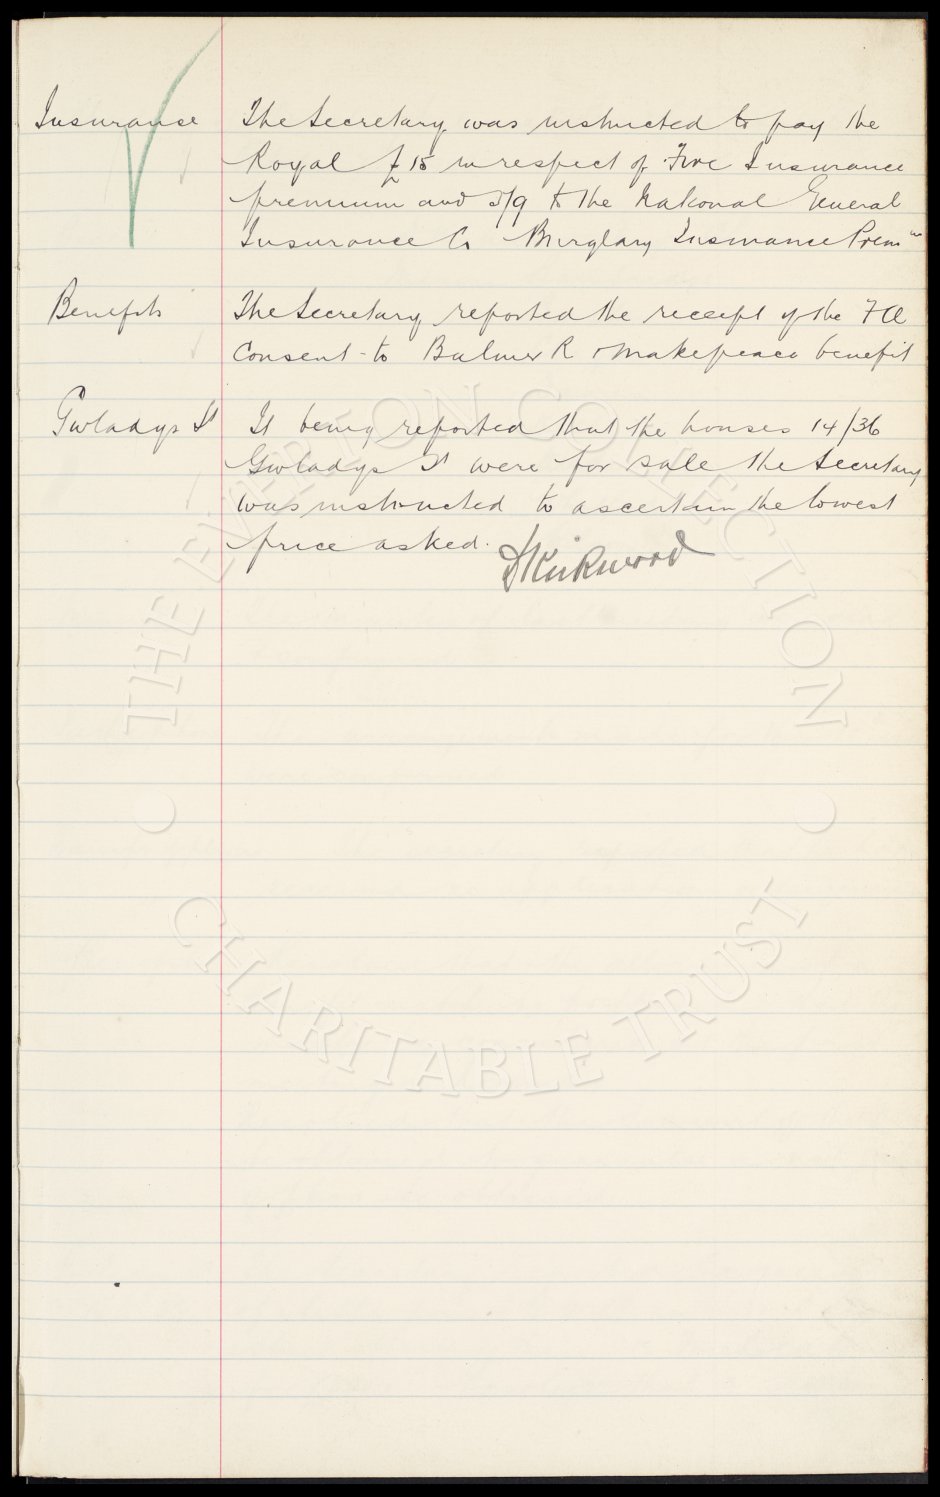 Insurance The Secretary was instructed to pay the
Royal £15 in respect of Fire Insurance
premium and 5/9 to the National General
Insurance Co Burglary Insurance Prem
Benefits The Secretary reported the receipt of the FA
consent to Balmer R & Makepeace benefit
Gwladys St It being reported that the houses 14/36
Gwladys St were for sale the Secretary
was instructed to ascertain the lowest
price asked.
D Kirkwood
THE EVERTON COLLECTION
CHARITABLE TRUST